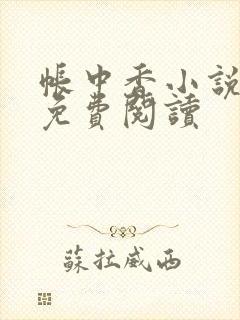 帳中香小說
免費閱讀
蘇拉威西